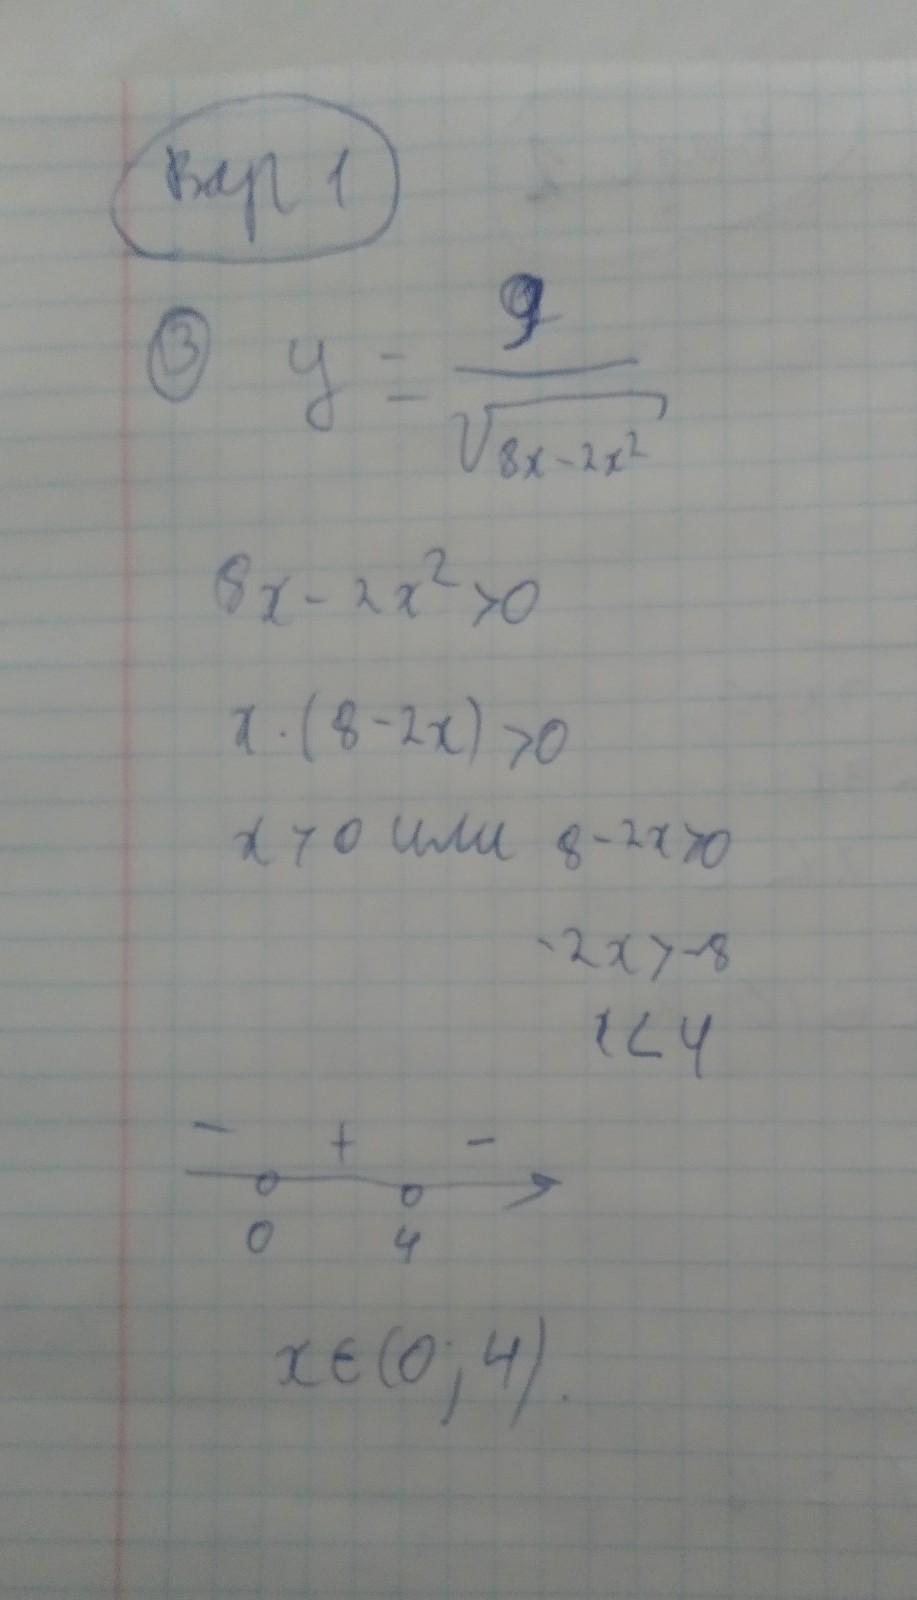 Вар 1
③ y = 9 / √(8x-2x²)
8x - 2x² >0
x·(8-2x) >0
x > 0 или 8-2x>0
-2x > -8
x < 4
- + -
0 4
x∈(0; 4).